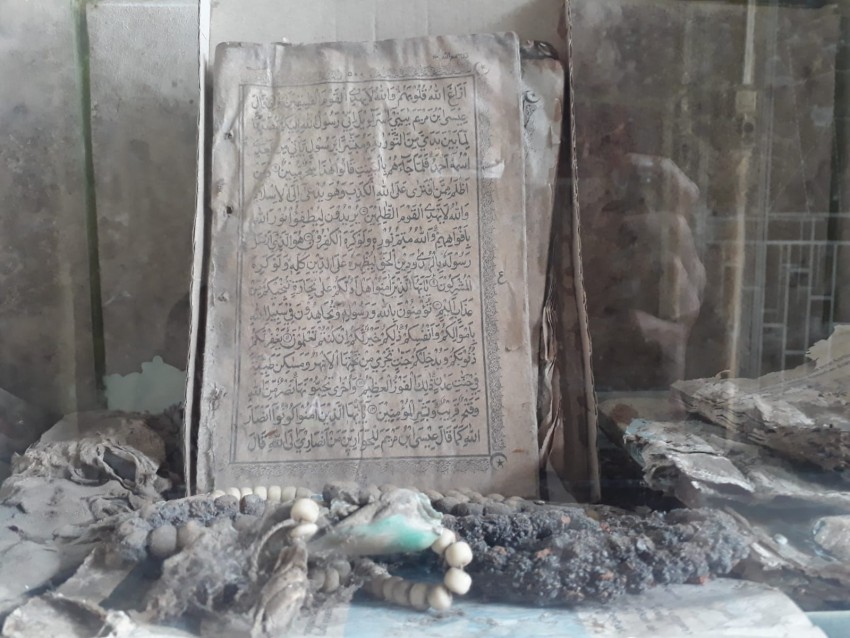 اَزَاغَ اللهُ قُلُوبَهُمْ وَاللهُ لَا يَهْدِى الْقَوْمَ الْفٰسِقِينَ وَاِذْ قَالَ
عِيسَى بْنُ مَرْيَمَ يٰبَنِى اِسْرَآئِيلَ اِنِّى رَسُولُ اللهِ اِلَيْكُمْ مُصَدِّقًا
لِمَا بَيْنَ يَدَىَّ مِنَ التَّوْرٰيةِ وَمُبَشِّرًا بِرَسُولٍ يَاْتِى مِنْ بَعْدِى
اسْمُهُ اَحْمَدُ فَلَمَّا جَآءَهُمْ بِالْبَيِّنٰتِ قَالُوا هٰذَا سِحْرٌ مُبِينٌ وَمَنْ
اَظْلَمُ مِمَّنِ افْتَرٰى عَلَى اللهِ الْكَذِبَ وَهُوَ يُدْعٰى اِلَى الْاِسْلَامِ
وَاللهُ لَا يَهْدِى الْقَوْمَ الظّٰلِمِينَ يُرِيدُونَ لِيُطْفِؤُا نُورَ اللهِ
بِاَفْوَاهِهِمْ وَاللهُ مُتِمُّ نُورِهِ وَلَوْ كَرِهَ الْكٰفِرُونَ هُوَ الَّذِى اَرْسَلَ
رَسُولَهُ بِالْهُدٰى وَدِينِ الْحَقِّ لِيُظْهِرَهُ عَلَى الدِّينِ كُلِّهِ وَلَوْ كَرِهَ
الْمُشْرِكُونَ يٰاَيُّهَا الَّذِينَ اٰمَنُوا هَلْ اَدُلُّكُمْ عَلٰى تِجَارَةٍ تُنْجِيكُمْ مِنْ
عَذَابٍ اَلِيمٍ تُؤْمِنُونَ بِاللهِ وَرَسُولِهِ وَتُجَاهِدُونَ فِى سَبِيلِ اللهِ
بِاَمْوَالِكُمْ وَاَنْفُسِكُمْ ذٰلِكُمْ خَيْرٌ لَكُمْ اِنْ كُنْتُمْ تَعْلَمُونَ يَغْفِرْ لَكُمْ
ذُنُوبَكُمْ وَيُدْخِلْكُمْ جَنّٰتٍ تَجْرِى مِنْ تَحْتِهَا الْاَنْهٰرُ وَمَسٰكِنَ طَيِّبَةً
فِى جَنّٰتِ عَدْنٍ ذٰلِكَ الْفَوْزُ الْعَظِيمُ وَاُخْرٰى تُحِبُّونَهَا نَصْرٌ مِنَ اللهِ
وَفَتْحٌ قَرِيبٌ وَبَشِّرِ الْمُؤْمِنِينَ يٰاَيُّهَا الَّذِينَ اٰمَنُوا كُونُوا اَنْصَارَ
اللهِ كَمَا قَالَ عِيسَى بْنُ مَرْيَمَ لِلْحَوَارِيّٖنَ مَنْ اَنْصَارِى اِلَى اللهِ قَالَ
ع